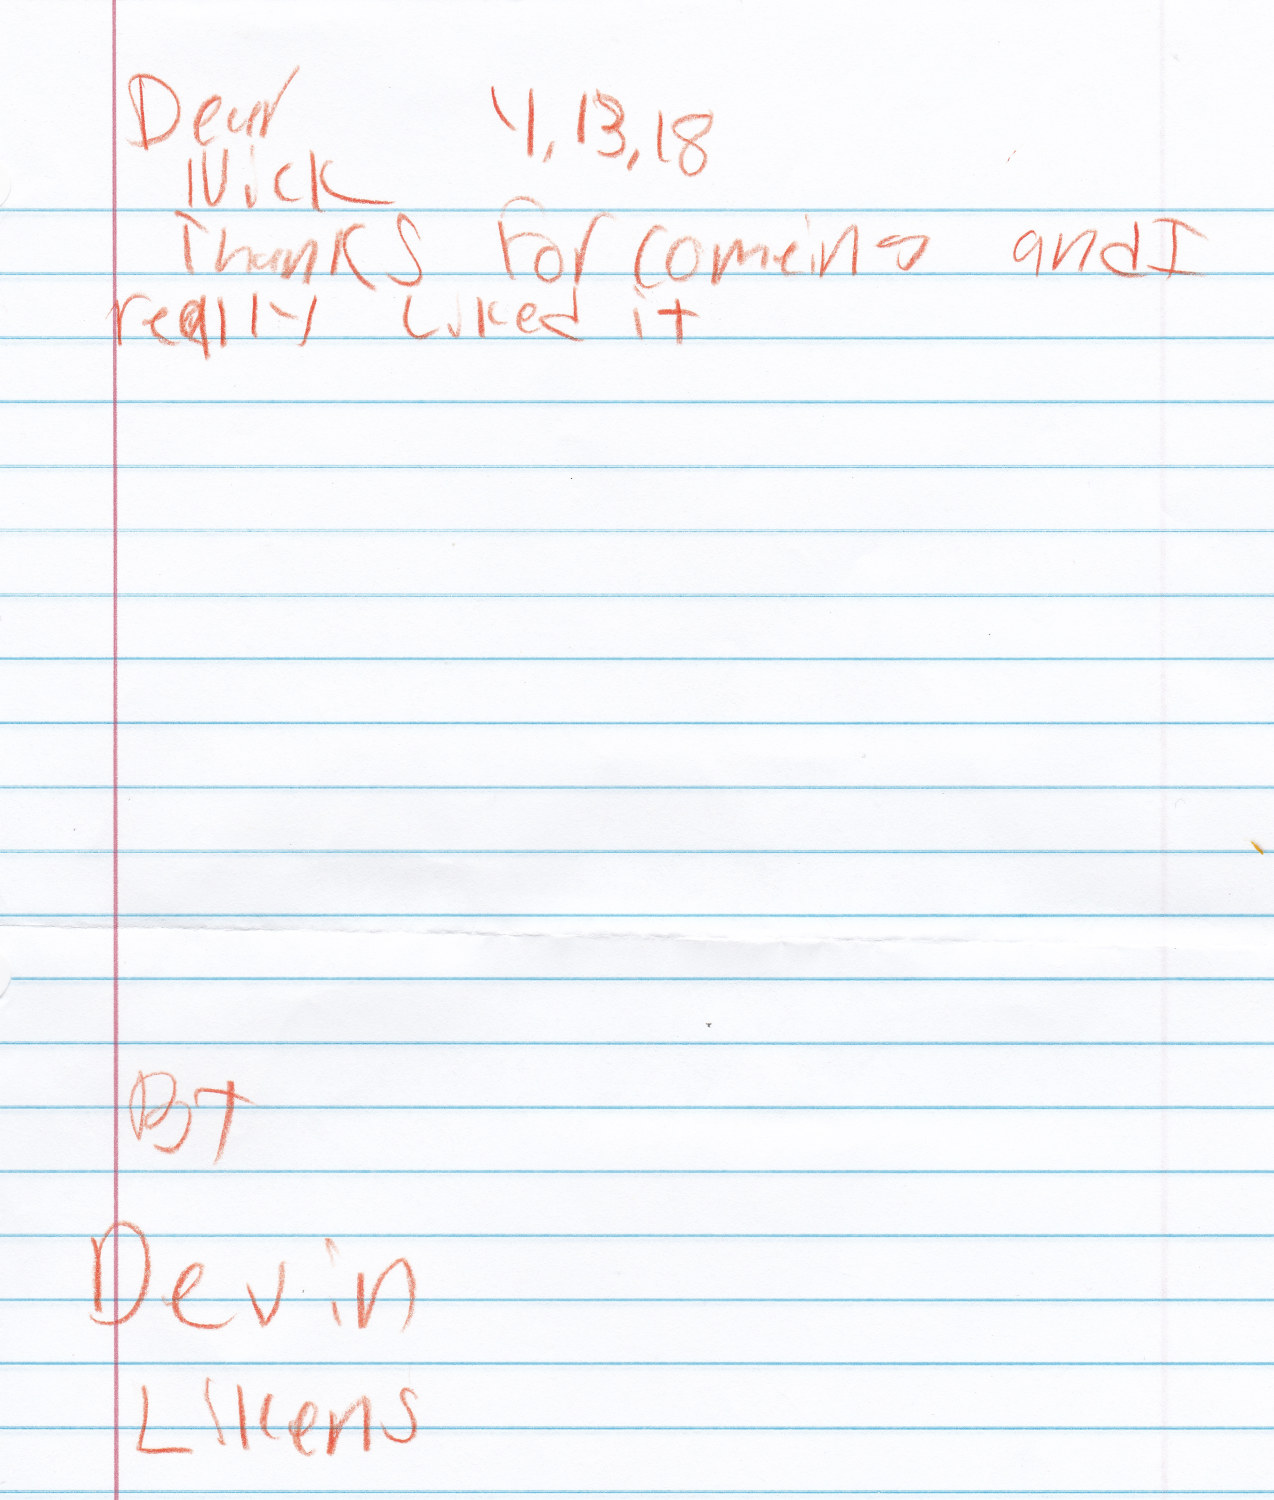 Dear 4,13,18
Nick
Thanks for comeing and I
really Liked it
By
Devin
Likens